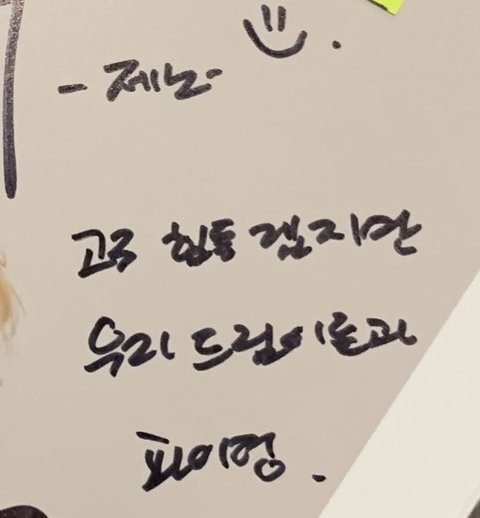 -제노-
힘들겠지만
우리 드림이들과
파이팅.